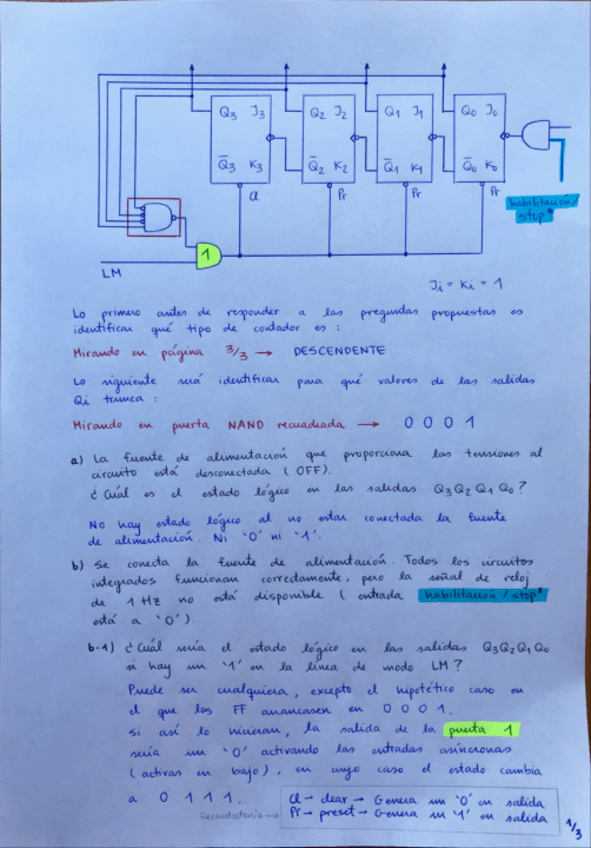 Q3 J3 Q2 J2 Q1 J1 Q0 J0
Q̄3 K3 Q̄2 K2 Q̄1 K1 Q̄0 K0
Cl Pr Pr Pr
habilitación/
stop*
1
LM
Ji = Ki = 1
Lo primero antes de responder a las preguntas propuestas es
identificar qué tipo de contador es :
Mirando en página 3/3 → DESCENDENTE
Lo siguiente será identificar para qué valores de las salidas
Qi trunca :
Mirando en puerta NAND recuadrada → 0 0 0 1
a) La fuente de alimentación que proporciona las tensiones al
circuito está desconectada (OFF).
¿Cuál es el estado lógico en las salidas Q3 Q2 Q1 Q0?
No hay estado lógico al no estar conectada la fuente
de alimentación. Ni '0' ni '1'.
b) Se conecta la fuente de alimentación. Todos los circuitos
integrados funcionan correctamente, pero la señal de reloj
de 1 Hz no está disponible (entrada habilitación/stop*
está a '0').
b-1) ¿Cuál sería el estado lógico en las salidas Q3 Q2 Q1 Q0
si hay un '1' en la línea de modo LM?
Puede ser cualquiera, excepto el hipotético caso en
el que los FF arrancasen en 0 0 0 1.
Si así lo hicieran, la salida de la puerta 1
sería un '0' activando las entradas asíncronas
(activas en bajo), en cuyo caso el estado cambia
a 0 1 1 1.
Recordatorio →
Cl → clear → Genera un '0' en salida
Pr → preset → Genera un '1' en salida
1/3